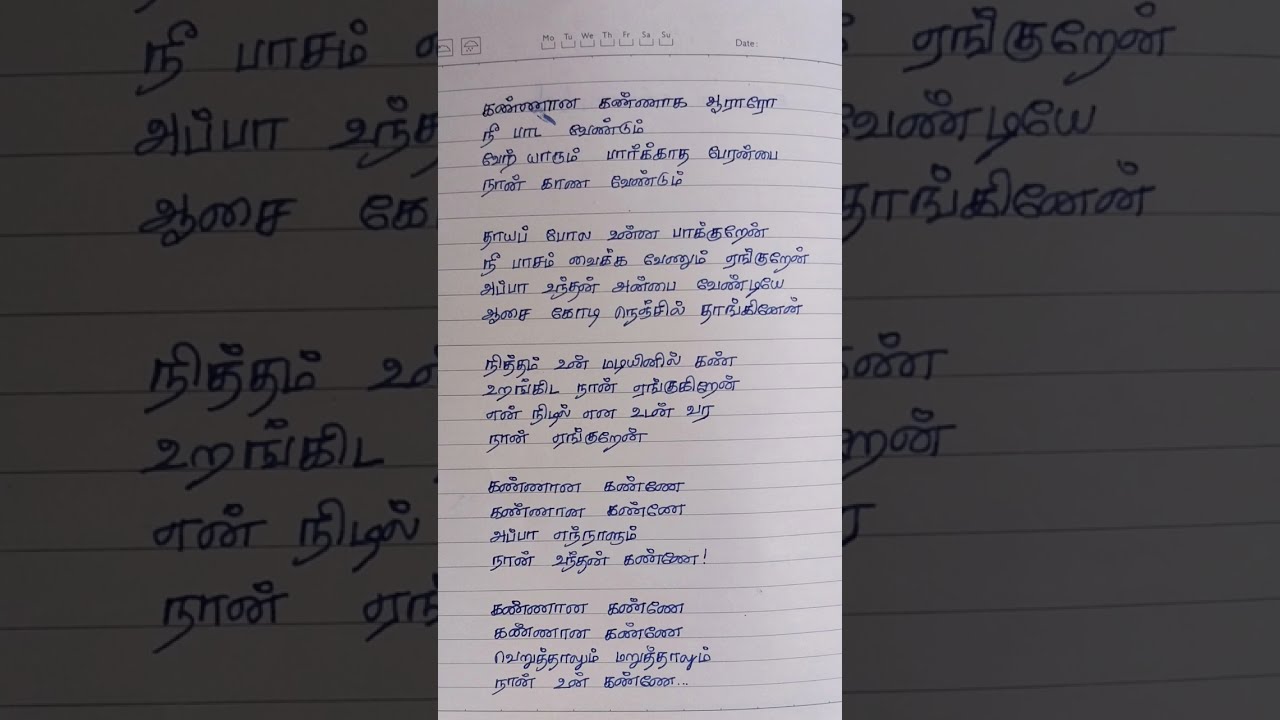 Mo Tu We Th Fr Sa Su Date:
கண்ணான கண்ணாக ஆராரோ
நீ பாட வேண்டும்
வேற் யாரும் பார்க்காத பேரன்பை
நான் காண வேண்டும்
தாயப் போல உன்ன பாக்குறேன்
நீ பாசம் வைக்க வேணும் ஏங்குறேன்
அப்பா உந்தன் அன்பை வேண்டியே
ஆசை கோடி நெஞ்சில் தாங்கினேன்
நித்தம் உன் மடியினில் கண்
உறங்கிட நான் ஏங்குகிறேன்
என் நிழல் என உடன் வர
நான் ஏங்குறேன்
கண்ணான கண்ணே
கண்ணான கண்ணே
அப்பா எந்நாளும்
நான் உந்தன் கண்ணே!
கண்ணான கண்ணே
கண்ணான கண்ணே
வெறுத்தாலும் மறுத்தாலும்
நான் உன் கண்ணே...